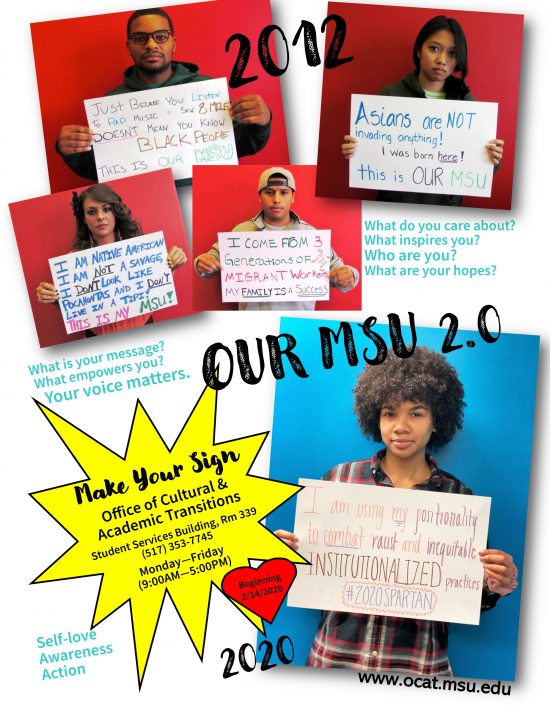 2012
JUST BECAUSE YOU LISTEN
TO R&B MUSIC + SAW 8 MILE
DOESN'T MEAN YOU KNOW
BLACK PEOPLE
THIS IS OUR MSU
Asians are NOT
invading anything!
I was born here!
this is OUR MSU
I AM NATIVE AMERICAN
I AM NOT A SAVAGE,
I DON'T LOOK LIKE
POCAHONTAS AND I DON'T
LIVE IN A TIPI!
THIS IS MY MSU!
I COME FROM 3
Generations of
MIGRANT WORKERS
MY FAMILY IS A SUCCESS
What do you care about?
What inspires you?
Who are you?
What are your hopes?
OUR MSU 2.0
What is your message?
What empowers you?
Your voice matters.
Make Your Sign
Office of Cultural &
Academic Transitions
Student Services Building, Rm 339
(517) 353-7745
Monday—Friday
(9:00AM—5:00PM)
Beginning
2/14/2020
I am using my positionality
to combat racist and inequitable
INSTITUTIONALIZED practices
#2020SPARTAN
Self-love
Awareness
Action
2020
www.ocat.msu.edu